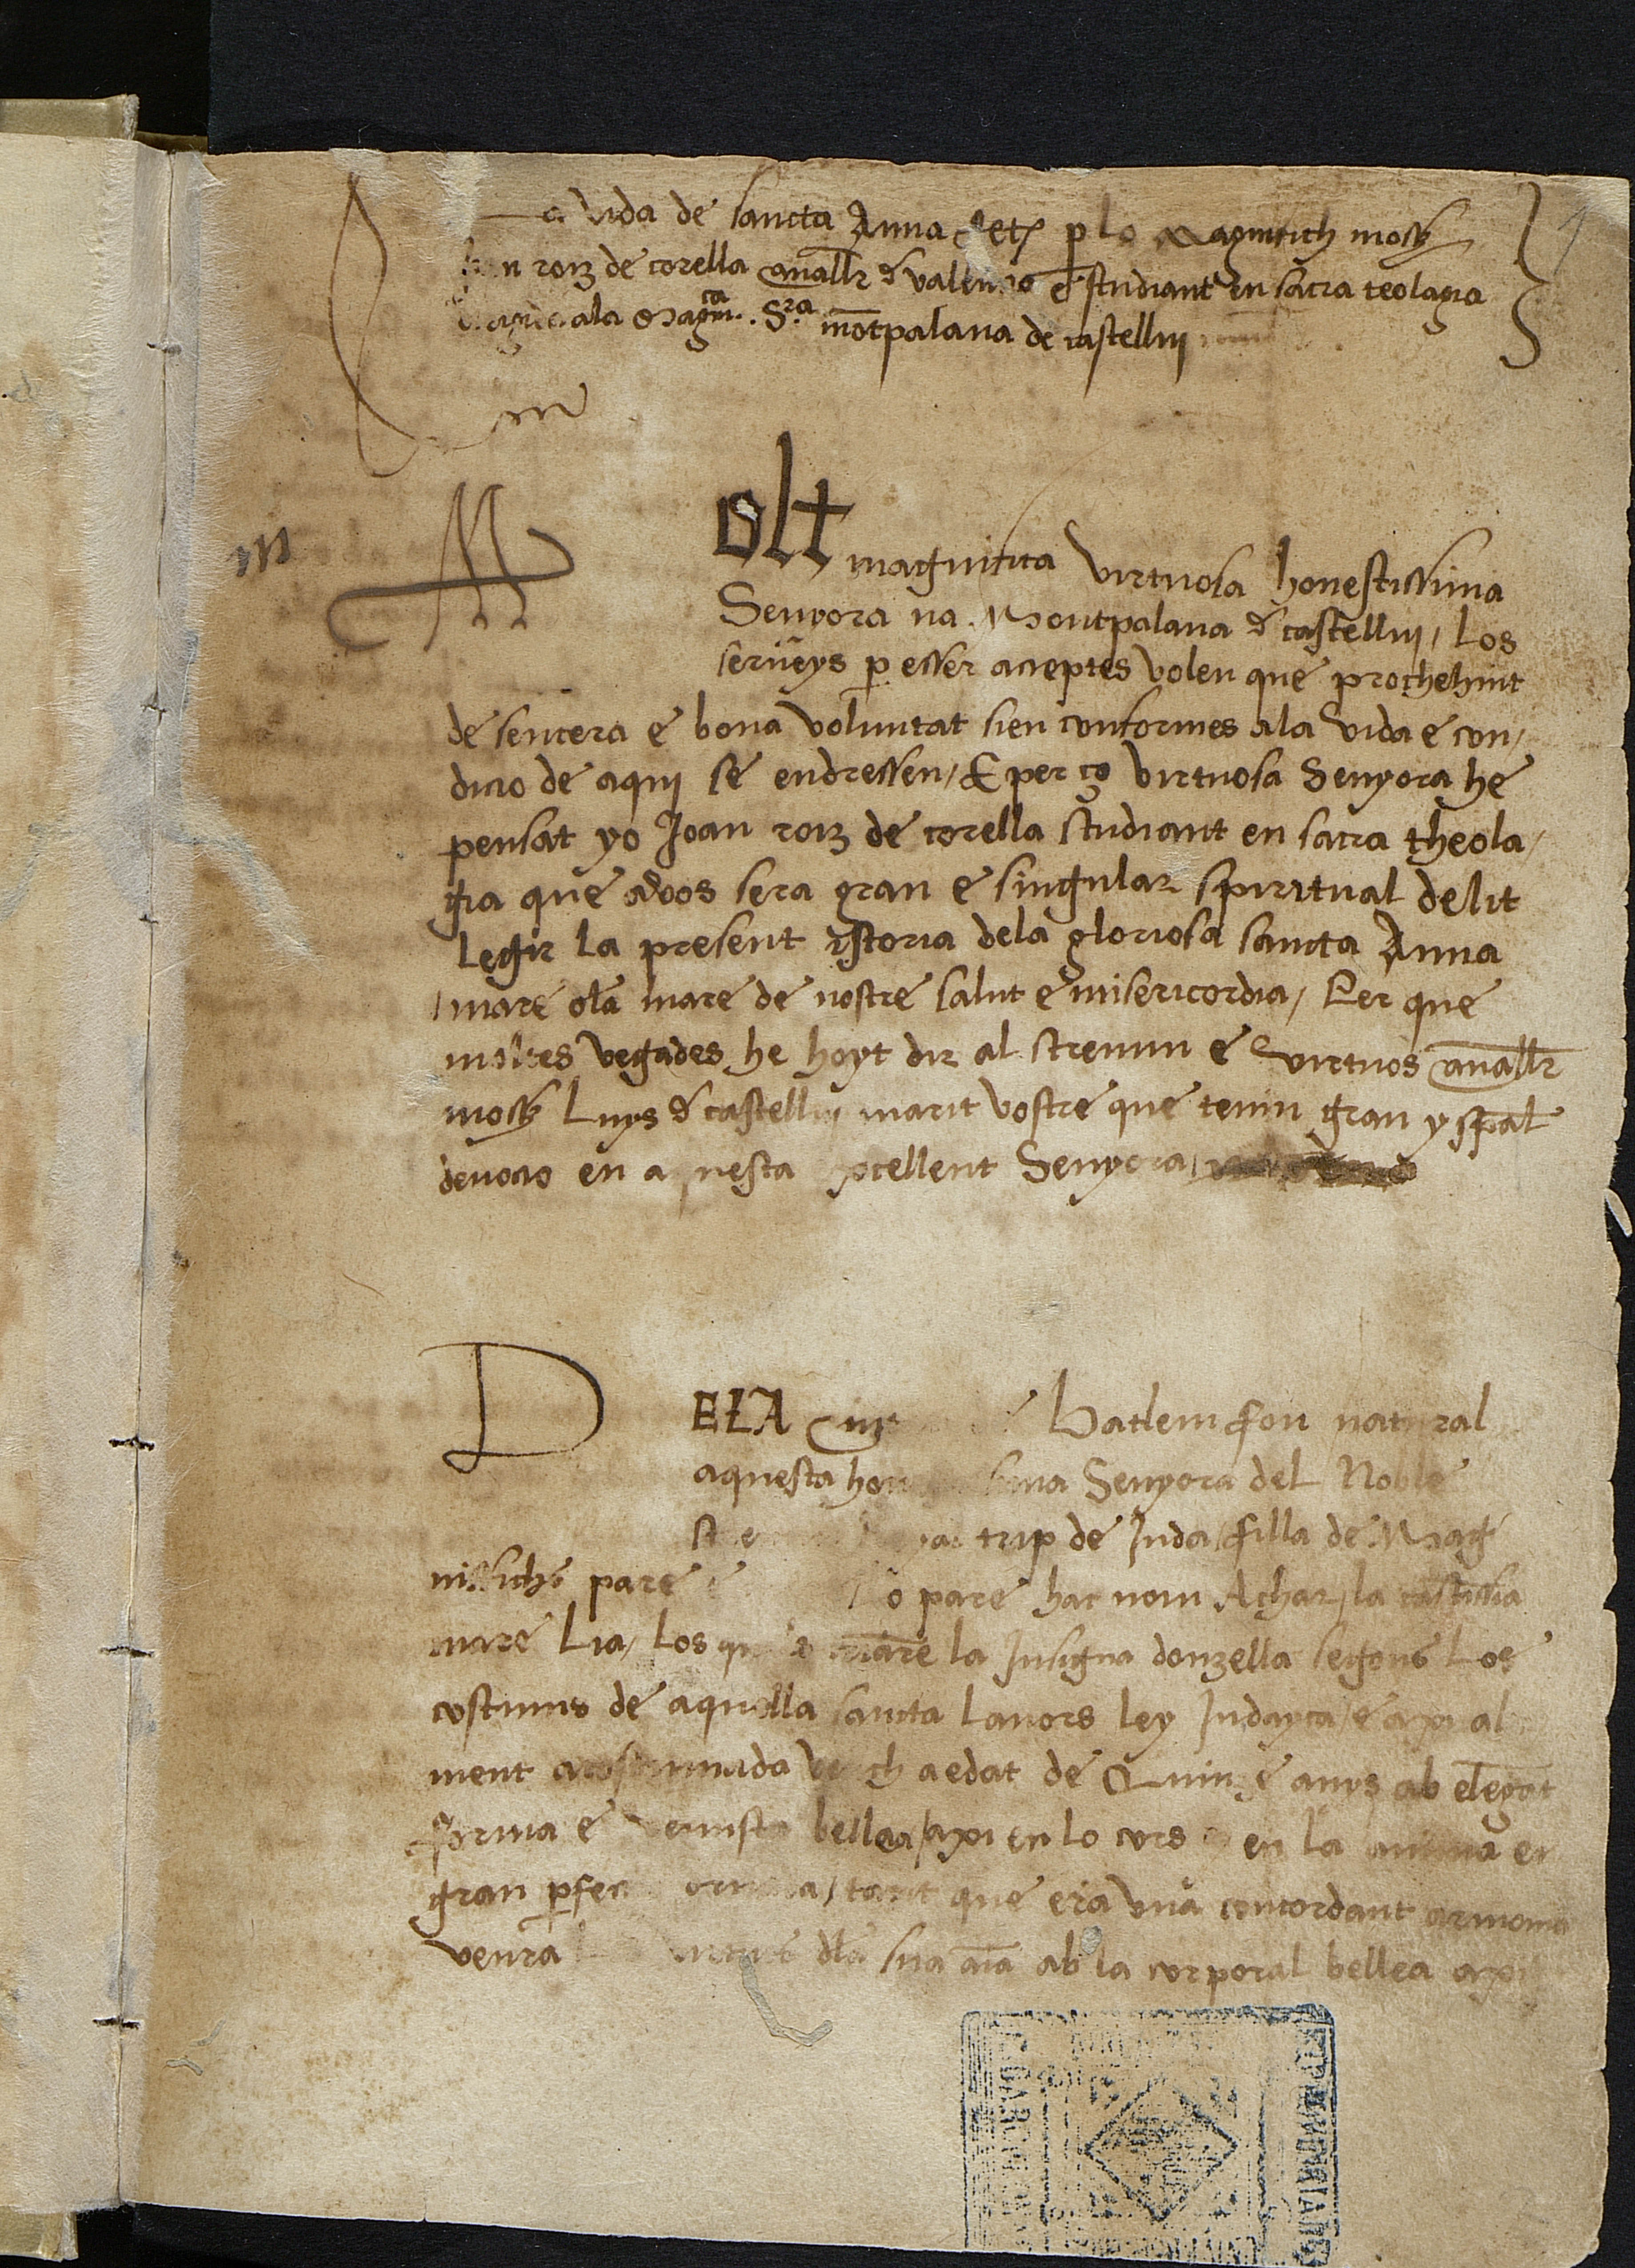 a vida de sancta Anna p lo Magnifich moss
roiz de corella cauallr đ valen e studiant en sacra teolagia
ala Magca. Sra mōtpalana de castellvi
m
M
olt magnifica virtuosa honestissima
Senyora na Montpalana đ castellvi / Los
serueys p esser acceptes volen que prochehint
de sencera e bona voluntat sien conformes ala vida e con /
dicio de aqui se endressen / E per ço virtuosa Senyora he
pensat yo Joan roiz de corella studiant en sacra theola /
gia que a vos sera gran e singular spiritual delit
legir la present istoria dela gloriosa sancta Anna
/ mare dla mare de nostre salut e misericordia / Per que
moltes vegades he hoyt dir al strenuu e virtuos cauallr
moss Luys đ castellvi marit vostre que teniu gran y spal
deuocio en aquesta excellent Senyora /
D
ELA Batlem fon natural
aquesta Senyora del Noble
trip de Juda / filla de Mag
nifichs pare o pare hac nom Achar / la castissia
mare Lia / Los criare la Insigna donzella segons Los
costums de aquella sancta lauors ley Judayca / e axi al
ment acostumada aedat de Quinze anys ab elegāt
forma e venusta bellea / axi en lo cors en la anima en
gran tant que era vna concordant armonia
dla sua aīa ab la corporal bellea axi